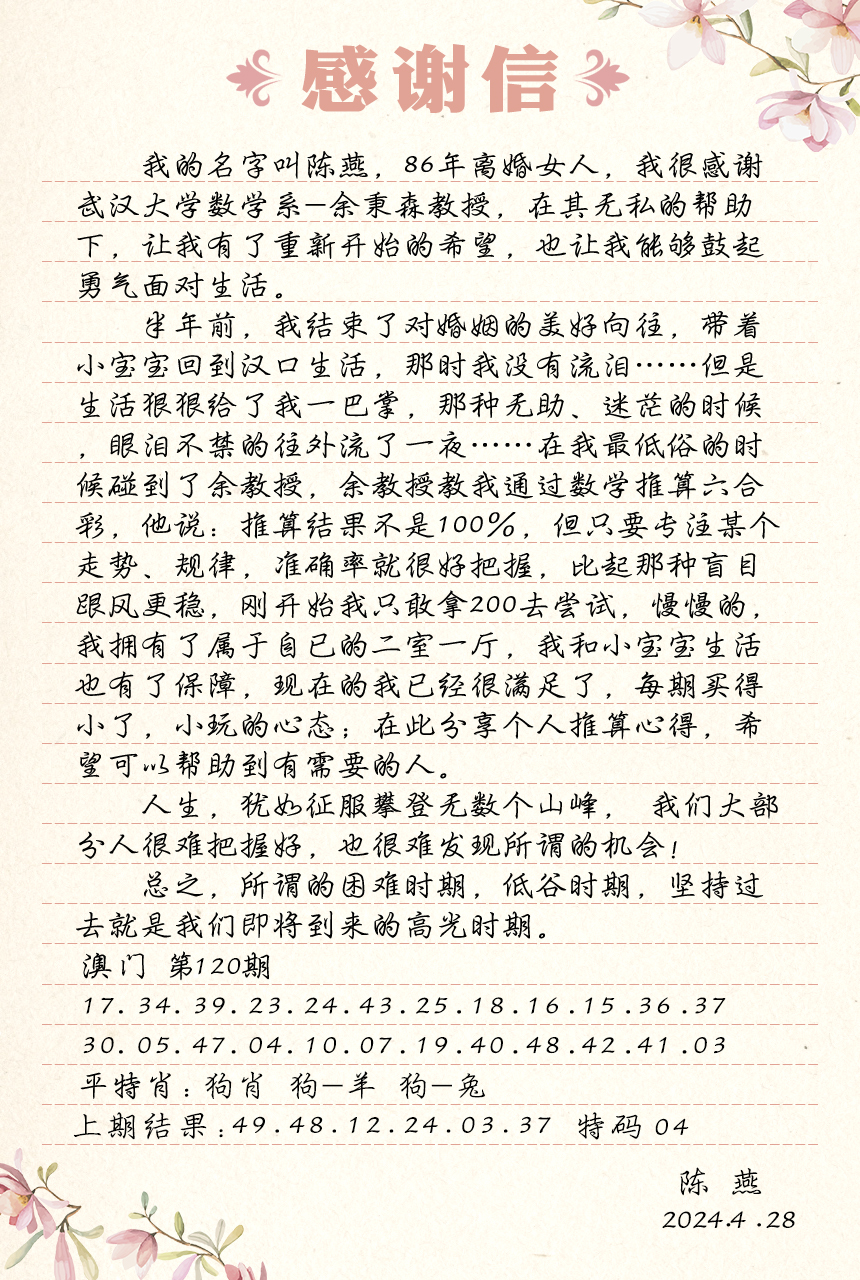 感谢信
我的名字叫陈燕，86年离婚女人，我很感谢
武汉大学数学系—余秉森教授，在其无私的帮助
下，让我有了重新开始的希望，也让我能够鼓起
勇气面对生活。
半年前，我结束了对婚姻的美好向往，带着
小宝宝回到汉口生活，那时我没有流泪……但是
生活狠狠给了我一巴掌，那种无助、迷茫的时候
，眼泪不禁的往外流了一夜……在我最低俗的时
候碰到了余教授，余教授教我通过数学推算六合
彩，他说：推算结果不是100%，但只要专注某个
走势、规律，准确率就很好把握，比起那种盲目
跟风更稳，刚开始我只敢拿200去尝试，慢慢的，
我拥有了属于自已的二室一厅，我和小宝宝生活
也有了保障，现在的我已经很满足了，每期买得
小了，小玩的心态；在此分享个人推算心得，希
望可以帮助到有需要的人。
人生，犹如征服攀登无数个山峰， 我们大部
分人很难把握好，也很难发现所谓的机会！
总之，所谓的困难时期，低谷时期，坚持过
去就是我们即将到来的高光时期。
澳门 第120期
17.34.39.23.24.43.25.18.16.15.36.37
30.05.47.04.10.07.19.40.48.42.41.03
平特肖：狗肖 狗—羊 狗—兔
上期结果：49.48.12.24.03.37 特码 04
陈 燕
2024.4.28